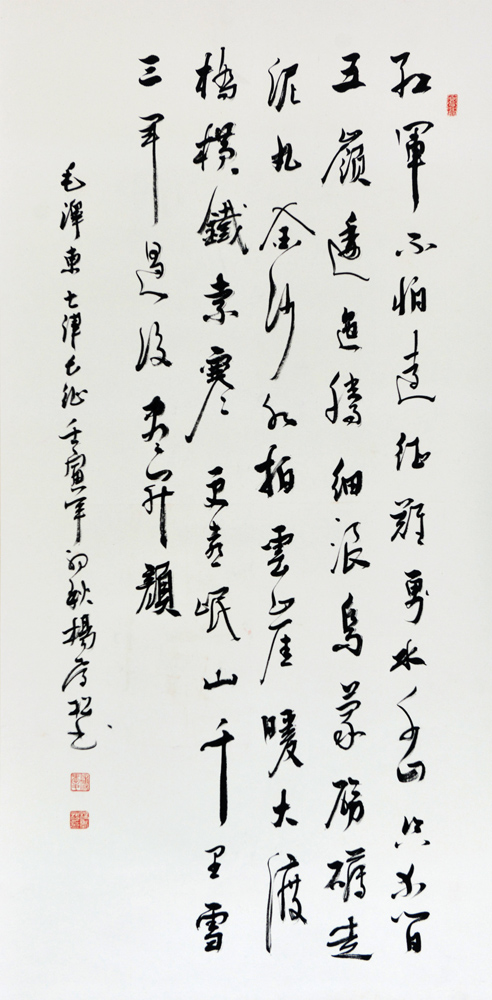 紅軍不怕遠征難萬水千山只等閒
五嶺逶迤騰細浪烏蒙磅礴走
泥丸金沙水拍雲崖暖大渡
橋橫鐵索寒更喜岷山千里雪
三軍過後盡開顏
毛澤東七律長征壬寅年初秋楊松書